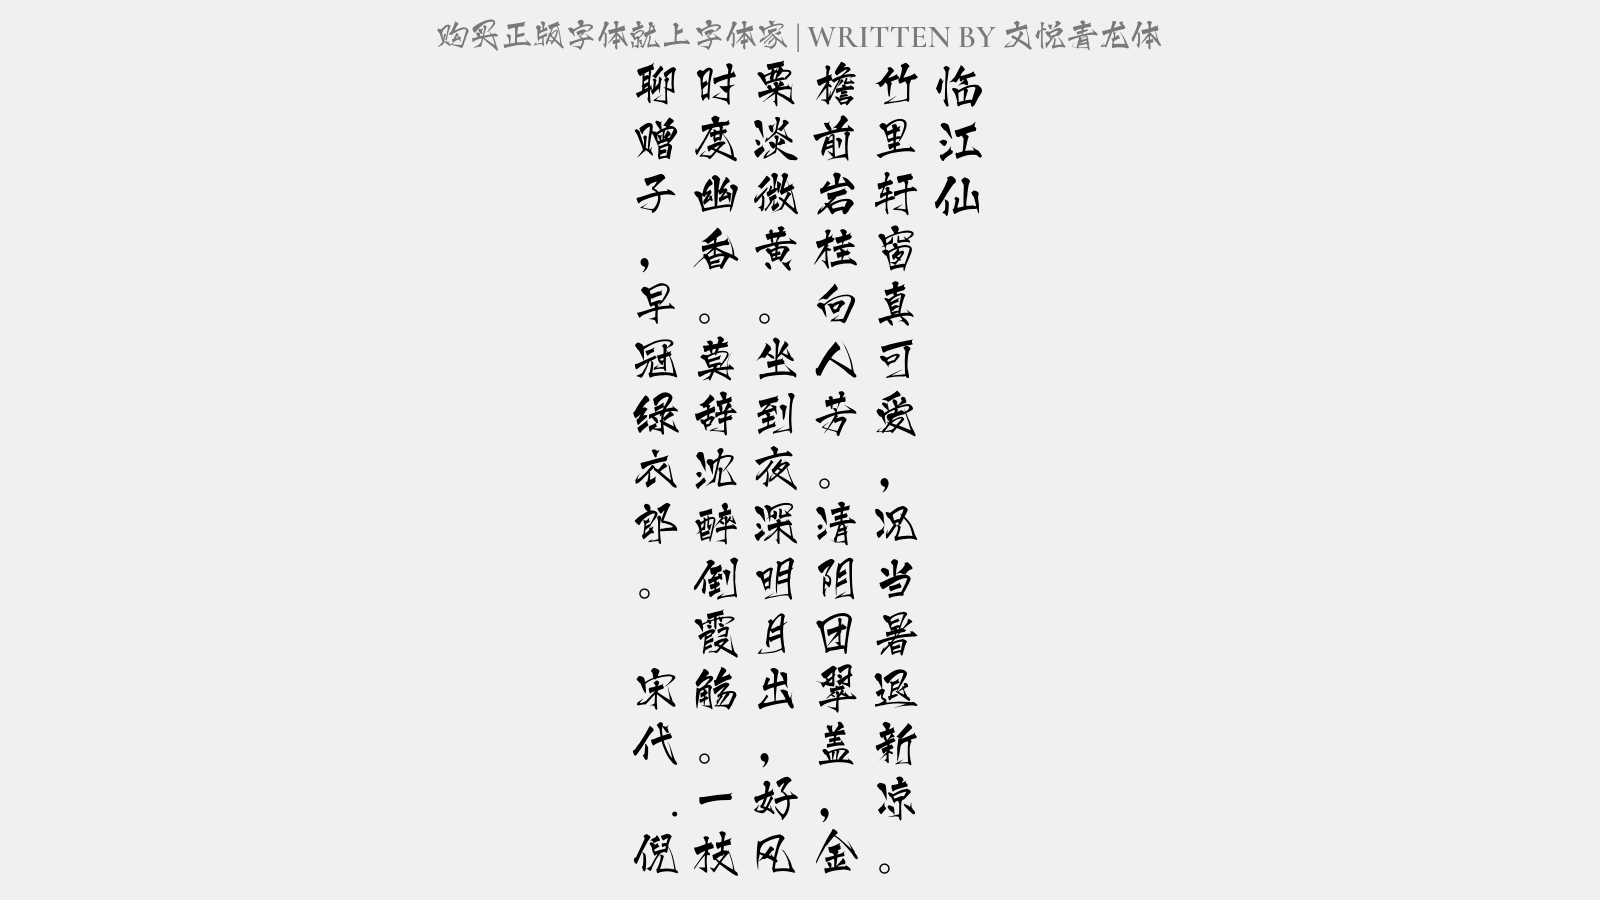 购买正版字体就上字体家 | WRITTEN BY 文悦青龙体
临江仙
竹里轩窗真可爱，况当暑退新凉。
檐前岩桂向人芳。清阻团翠盖，金
粟淡微黄。坐到夜深明月出，好风
时度幽香。莫辞沈醉倒霞觞。一技
聊赠子，早冠绿衣郎。 宋代 .倪